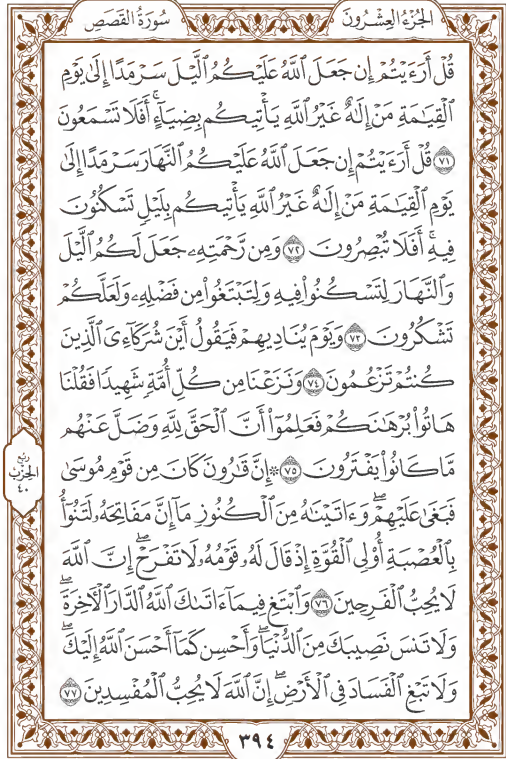 الجُزْءُ العِشْرُونَ
سُورَةُ القَصَصِ
قُلْ أَرَءَيْتُمْ إِن جَعَلَ ٱللَّهُ عَلَيْكُمُ ٱلَّيْلَ سَرْمَدًا إِلَىٰ يَوْمِ
ٱلْقِيَٰمَةِ مَنْ إِلَٰهٌ غَيْرُ ٱللَّهِ يَأْتِيكُم بِضِيَآءٍ ۖ أَفَلَا تَسْمَعُونَ
٧١ قُلْ أَرَءَيْتُمْ إِن جَعَلَ ٱللَّهُ عَلَيْكُمُ ٱلنَّهَارَ سَرْمَدًا إِلَىٰ
يَوْمِ ٱلْقِيَٰمَةِ مَنْ إِلَٰهٌ غَيْرُ ٱللَّهِ يَأْتِيكُم بِلَيْلٍ تَسْكُنُونَ
فِيهِ ۚ أَفَلَا تُبْصِرُونَ ٧٢ وَمِن رَّحْمَتِهِۦ جَعَلَ لَكُمُ ٱلَّيْلَ
وَٱلنَّهَارَ لِتَسْكُنُوا۟ فِيهِ وَلِتَبْتَغُوا۟ مِن فَضْلِهِۦ وَلَعَلَّكُمْ
تَشْكُرُونَ ٧٣ وَيَوْمَ يُنَادِيهِمْ فَيَقُولُ أَيْنَ شُرَكَآءِىَ ٱلَّذِينَ
كُنتُمْ تَزْعُمُونَ ٧٤ وَنَزَعْنَا مِن كُلِّ أُمَّةٍ شَهِيدًا فَقُلْنَا
هَاتُوا۟ بُرْهَٰنَكُمْ فَعَلِمُوٓا۟ أَنَّ ٱلْحَقَّ لِلَّهِ وَضَلَّ عَنْهُم
مَّا كَانُوا۟ يَفْتَرُونَ ٧٥ ۞ إِنَّ قَٰرُونَ كَانَ مِن قَوْمِ مُوسَىٰ
فَبَغَىٰ عَلَيْهِمْ ۖ وَءَاتَيْنَٰهُ مِنَ ٱلْكُنُوزِ مَآ إِنَّ مَفَاتِحَهُۥ لَتَنُوٓأُ
بِٱلْعُصْبَةِ أُو۟لِى ٱلْقُوَّةِ إِذْ قَالَ لَهُۥ قَوْمُهُۥ لَا تَفْرَحْ ۖ إِنَّ ٱللَّهَ
لَا يُحِبُّ ٱلْفَرِحِينَ ٧٦ وَٱبْتَغِ فِيمَآ ءَاتَىٰكَ ٱللَّهُ ٱلدَّارَ ٱلْءَاخِرَةَ ۖ
وَلَا تَنسَ نَصِيبَكَ مِنَ ٱلدُّنْيَا ۖ وَأَحْسِن كَمَآ أَحْسَنَ ٱللَّهُ إِلَيْكَ ۖ
وَلَا تَبْغِ ٱلْفَسَادَ فِى ٱلْأَرْضِ ۖ إِنَّ ٱللَّهَ لَا يُحِبُّ ٱلْمُفْسِدِينَ ٧٧
ربع
الحزب
٤٠
٣٩٤